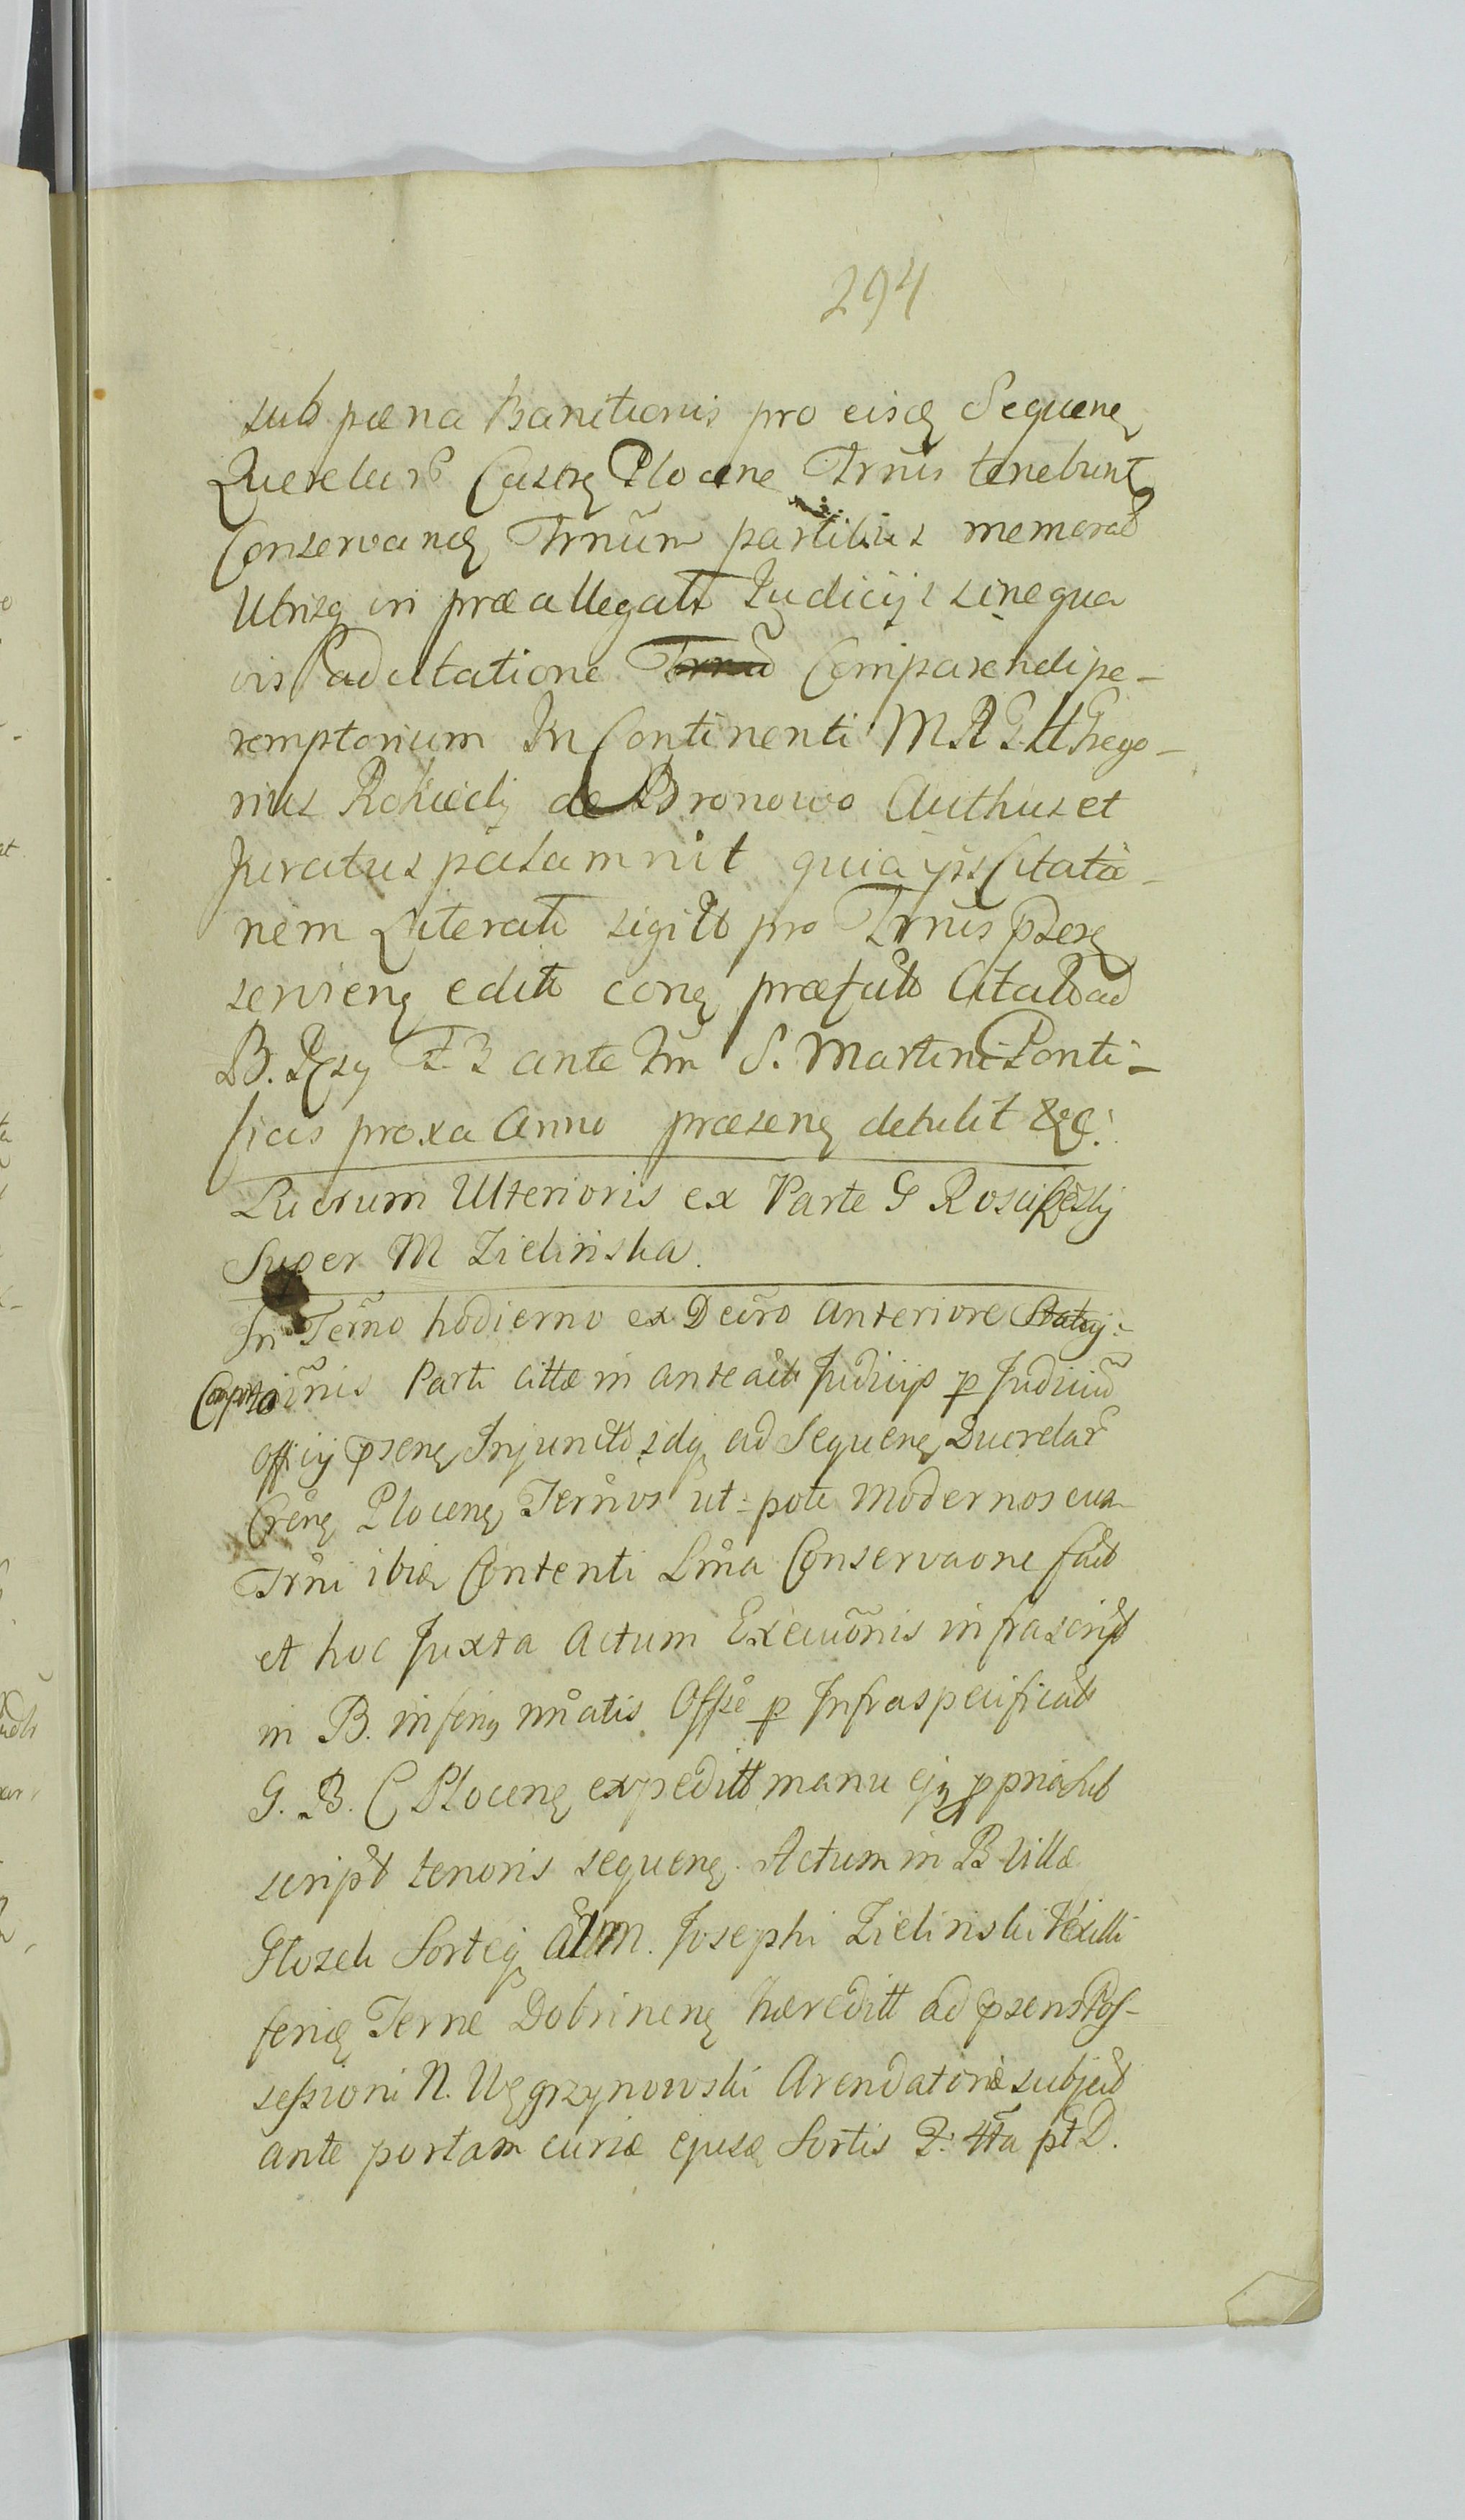 294
sub pœna Banitionis pro eisd Sequen
Querelar Castr Plocen Trnis tenebunt
Conservand Trnum partibus memorat
Utrisq in præallegatt Judicijs sine qua
vis adcitatione Comparendi pe-
remptorium In Continenti M R G H Grego-
rius Rokicki de Bronowo Authus et
Juratus palam nit quia ijs Citatio-
nem Literat sigill pro Trnis pser
servien edit con præfat Citat ad
B. F 3 ante fm S. Martini Ponti-
ficis proxa Anno præsen detulit &c:
Lucrum Ulterioris ex Parte G Rosciszewski
Super M Zielinska.
In Termo hodierno ex Decro anteriore
Parti cittæ in anteact Judicijs p Judiciu
Officij psen Injunctt sdq ad Sequen Querelar
Plocen Termos ut-pote modernos
Trni ibid Contenti Lma Conservaone fact
et hoc Juxta Actum Execuonis infrascript
in B. infer nnatis Offse p Infraspecificat
G. B. C Plocen expeditt manu ejq ppria sub
script tenoris sequen. Actum in B Villa
Ptoseh Sorteq Josephi Zielinski Vexilli
feri Terræ Dobrinen hæreditt ad psens Pos-
sessioni N. Węgrzynowski Arendatoriæ subject
ante portam curiæ ejusd Sortis F: 4ta pt D.